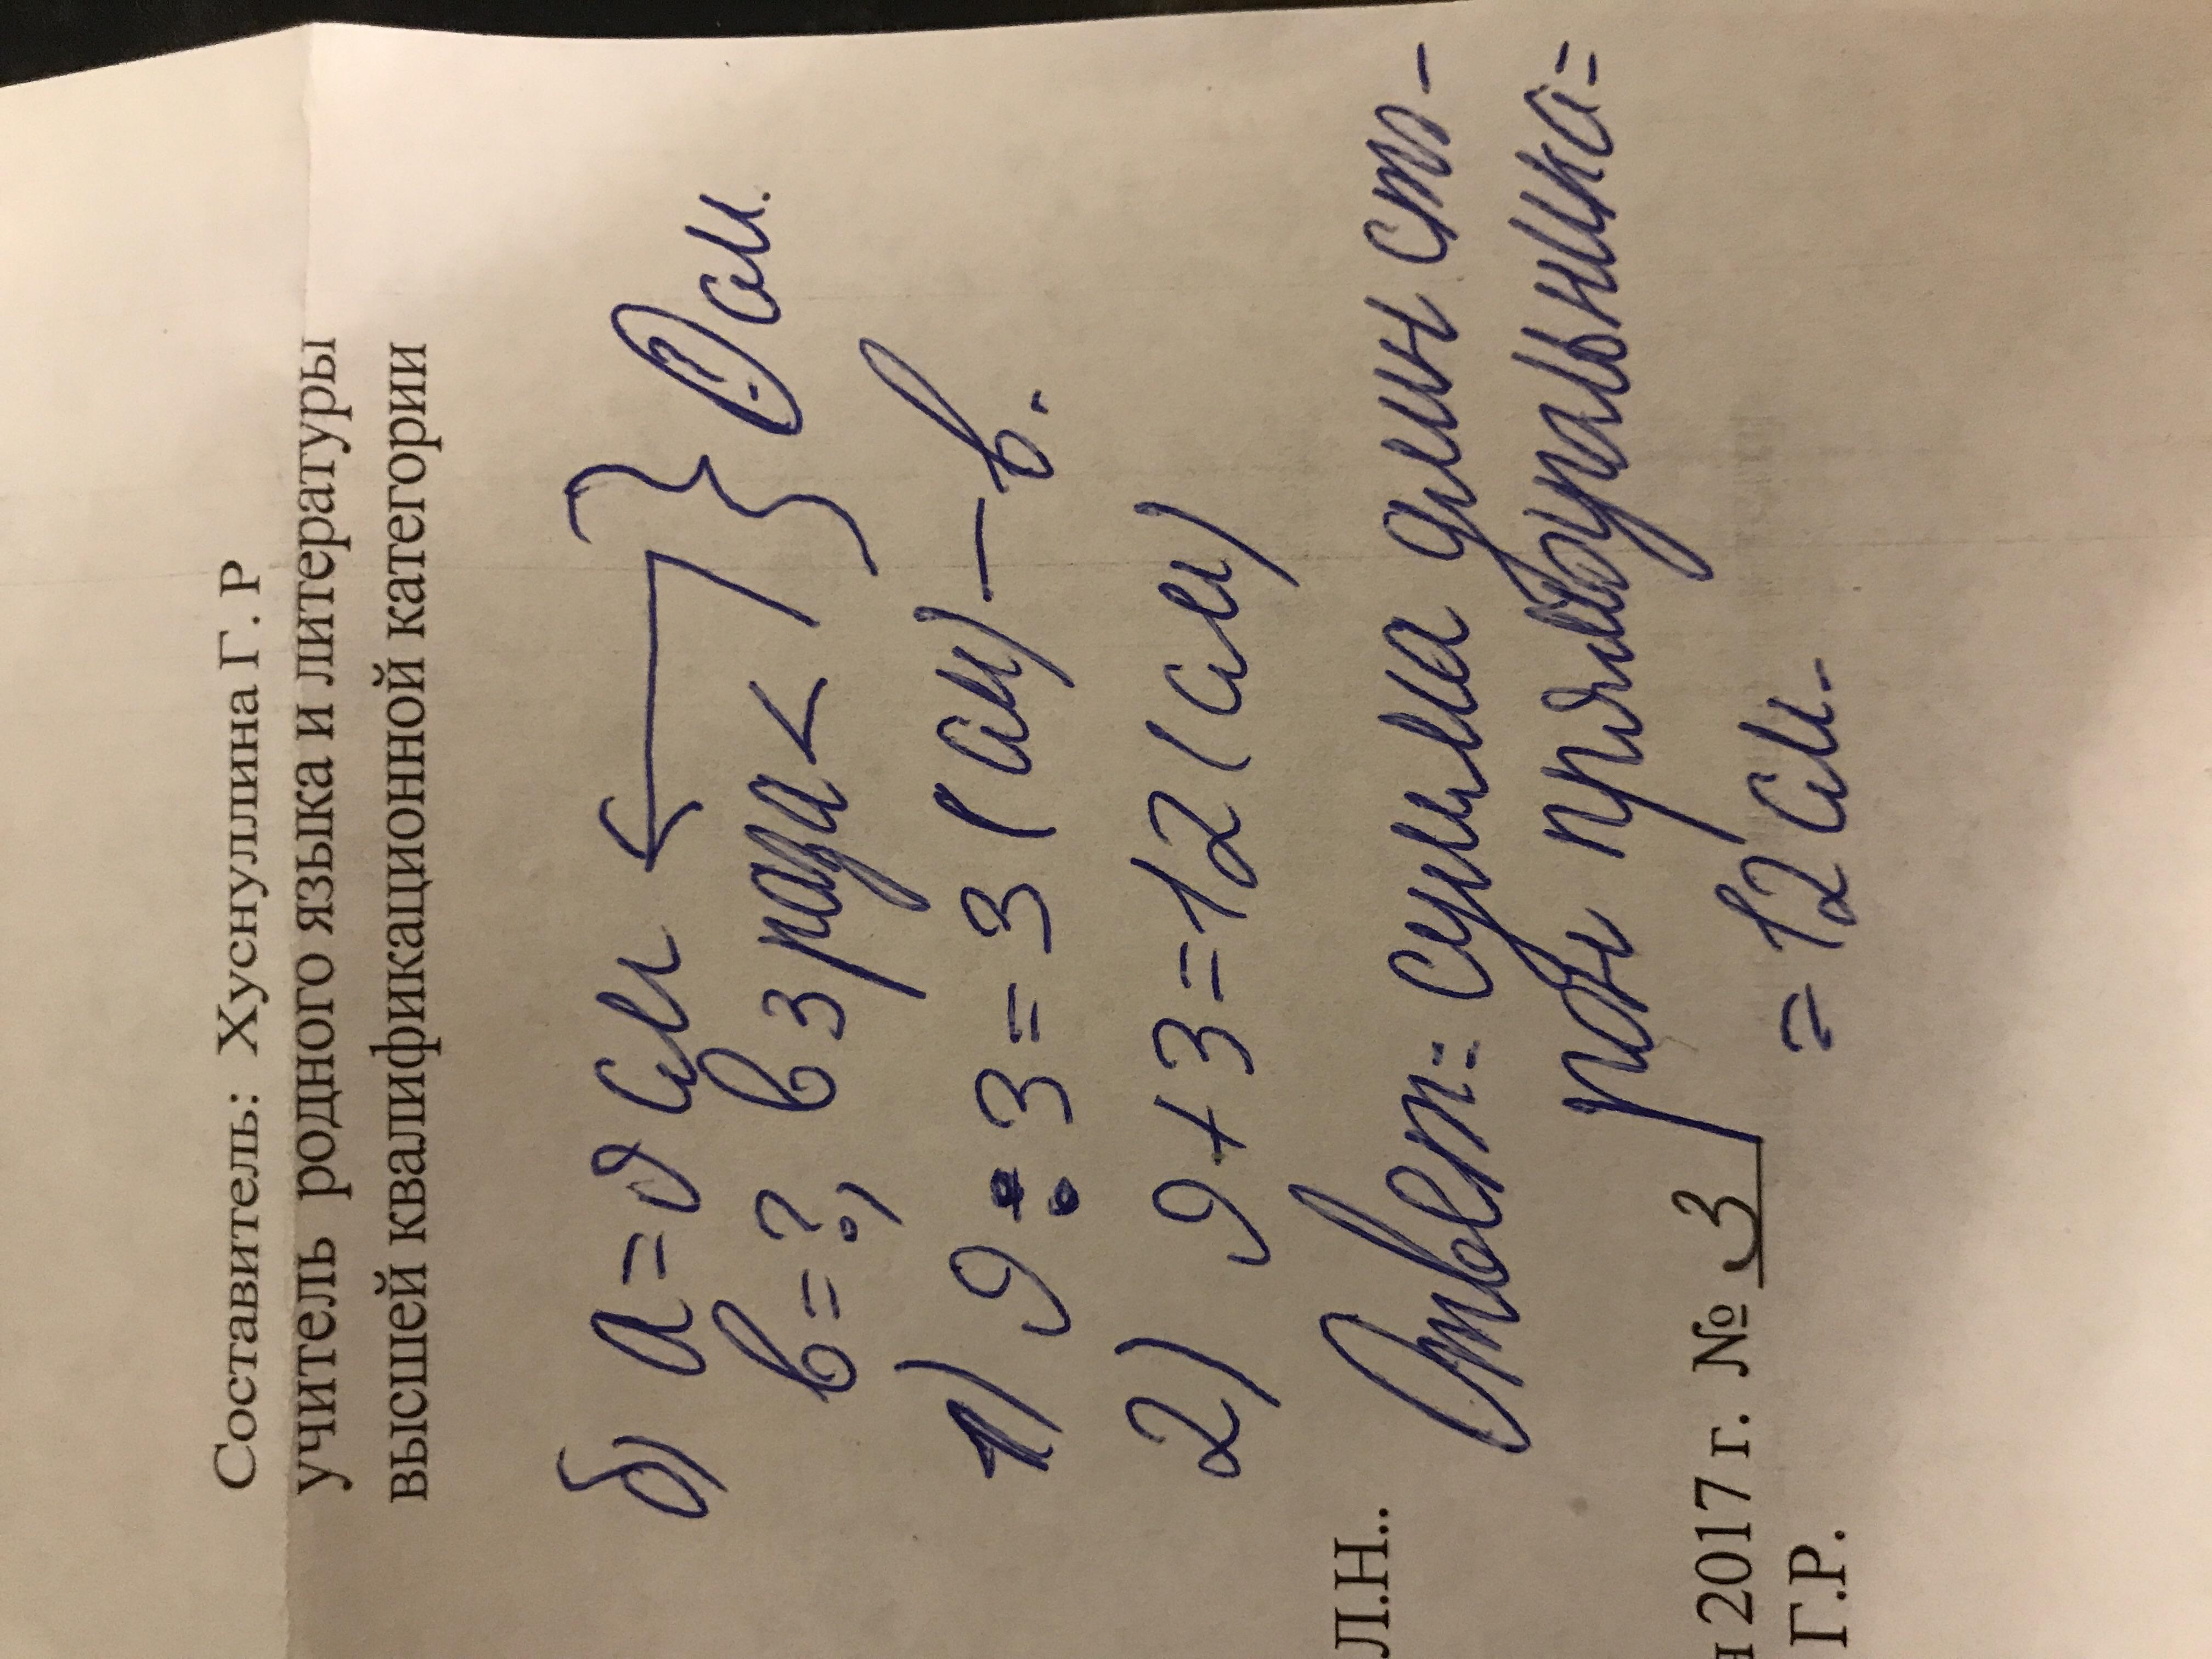 Составитель: Хуснуллина Г. Р
учитель родного языка и литературы
высшей квалификационной категории
б) a = 9 см
в = ?, в 3 раза < } ? см.
1) 9 : 3 = 3 (см) – в.
2) 9 + 3 = 12 (см)
Ответ: сумма длин ст-
рон прямоугольника =
= 12 см.
Л.Н..
н 2017 г. № 3
Г.Р.